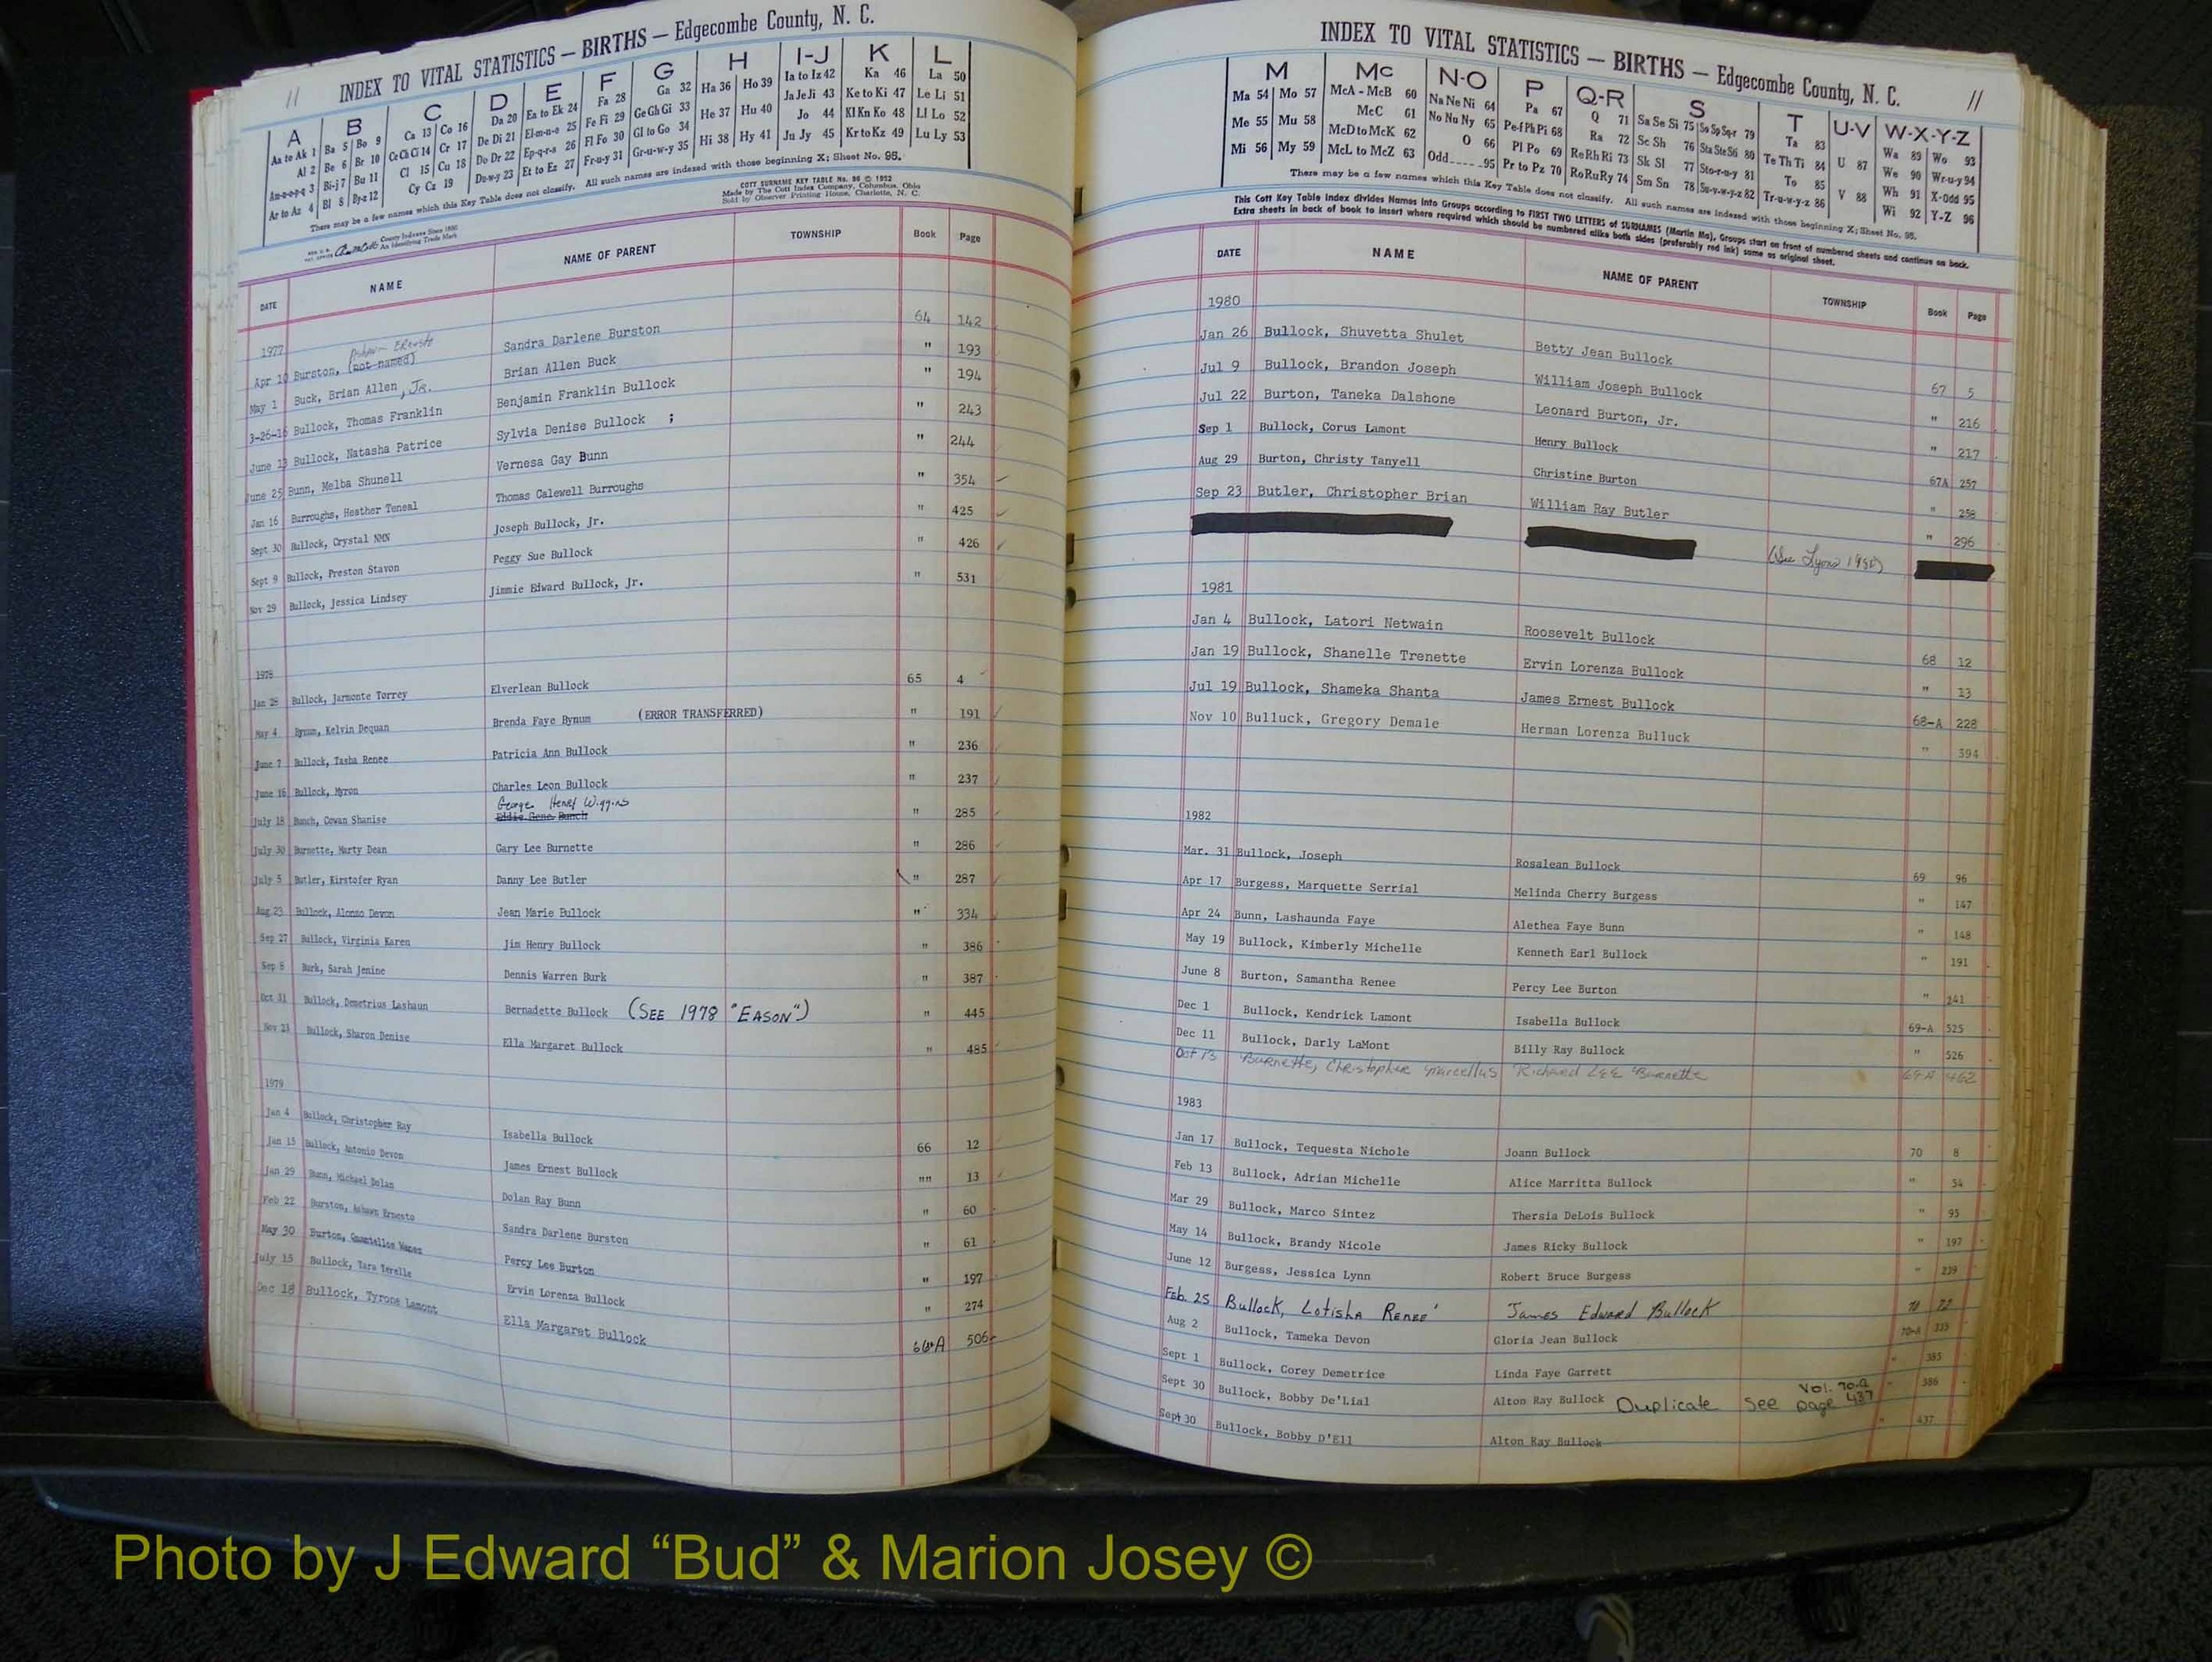 11
INDEX TO VITAL STATISTICS — BIRTHS — Edgecombe County, N. C.
A B C D E F G H I-J K L
Aa to Ak 1 Ba 5 Bo 9 Ca 13 Co 16 Da 20 Ea to Ek 24 Fa 28 Ga 32 Ha 36 Ho 39 Ia to Iz 42 Ka 46 La 50
Al 2 Be 6 Br 10 Ce Ch Ci 14 Cr 17 De Di 21 El-m-n-o 25 Fe Fi 29 Ge Gh Gi 33 He 37 Hu 40 Ja Je Ji 43 Ke to Ki 47 Le Li 51
Am-o-p-q 3 Bi-j 7 Bu 11 Cl 15 Cu 18 Do Dr 22 Ep-q-r-s 26 Fl Fo 30 Gl to Go 34 Hi 38 Hy 41 Jo 44 Kl Kn Ko 48 Ll Lo 52
Ar to Az 4 Bl 8 By-z 12 Cy Cz 19 Du-w-y 23 Et to Ez 27 Fr-u-y 31 Gr-u-w-y 35 Ju Jy 45 Kr to Kz 49 Lu Ly 53
There may be a few names which this Key Table does not classify. All such names are indexed with those beginning X; Sheet No. 95.
COTT SURNAME KEY TABLE No. 96 © 1952
Made by The Cott Index Company, Columbus, Ohio
Sold by Observer Printing House, Charlotte, N. C.
County Indexes Since 1880
An Identifying Trade Mark
DATE NAME NAME OF PARENT TOWNSHIP Book Page
1977
Ashawn Ernesto
Apr 10 Burston, (not-named) Sandra Darlene Burston 64 142
May 1 Buck, Brian Allen, Jr. Brian Allen Buck " 193
3-26-16 Bullock, Thomas Franklin Benjamin Franklin Bullock " 194
June 13 Bullock, Natasha Patrice Sylvia Denise Bullock ; " 243
June 25 Bunn, Melba Shunell Vernesa Gay Bunn " 244
Jan 16 Burroughs, Heather Teneal Thomas Calewell Burroughs " 354
Sept 30 Bullock, Crystal NMN Joseph Bullock, Jr. " 425
Sept 9 Bullock, Preston Stavon Peggy Sue Bullock " 426
Nov 29 Bullock, Jessica Lindsey Jimmie Edward Bullock, Jr. " 531
1978
Jan 28 Bullock, Jarmonte Torrey Elverlean Bullock 65 4
May 4 Bynum, Kelvin Dequan Brenda Faye Bynum (ERROR TRANSFERRED) " 191
June 7 Bullock, Tasha Renee Patricia Ann Bullock " 236
June 16 Bullock, Myron Charles Leon Bullock " 237
George Henry Wiggins
July 18 Bunch, Cowan Shanise Eddie Gene Bunch " 285
July 30 Burnette, Marty Dean Gary Lee Burnette " 286
July 5 Butler, Kirstofer Ryan Danny Lee Butler " 287
Aug 23 Bullock, Alonzo Devon Jean Marie Bullock " 334
Sep 27 Bullock, Virginia Karen Jim Henry Bullock " 386
Sep 8 Burk, Sarah Jenine Dennis Warren Burk " 387
Oct 31 Bullock, Demetrius Lashaun Bernadette Bullock (SEE 1978 "EASON") " 445
Nov 23 Bullock, Sharon Denise Ella Margaret Bullock " 485
1979
Jan 4 Bullock, Christopher Ray Isabella Bullock 66 12
Jan 15 Bullock, Antonio Devon James Ernest Bullock "" 13
Jan 29 Bunn, Michael Dolan Dolan Ray Bunn " 60
Feb 22 Burston, Ashawn Ernesto Sandra Darlene Burston " 61
May 30 Burton, Percy Lee Burton " 197
July 15 Bullock, Tara Terelle Ervin Lorenza Bullock " 274
Dec 18 Bullock, Tyrone Lamont Ella Margaret Bullock 66-A 506
INDEX TO VITAL STATISTICS — BIRTHS — Edgecombe County, N. C.
11
M Mc N-O P Q-R S T U-V W-X-Y-Z
Ma 54 Mo 57 McA - McB 60 Na Ne Ni 64 Pa 67 Q 71 Sa Se Si 75 So Sp Sq-r 79 Ta 83 U 87 Wa 89 Wo 93
Me 55 Mu 58 McC 61 No Nu Ny 65 Pe-f Ph Pi 68 Ra 72 Sc Sh 76 Sta Ste Sti 80 Te Th Ti 84 V 88 We 90 Wr-u-y 94
Mi 56 My 59 McD to McK 62 O 66 Pl Po 69 Re Rh Ri 73 Sk Sl 77 Sto-r-u-y 81 To 85 Wh 91 X-Odd 95
McL to McZ 63 Odd 95 Pr to Pz 70 Ro Ru Ry 74 Sm Sn 78 Su-v-w-y-z 82 Tr-u-w-y-z 86 Wi 92 Y-Z 96
There may be a few names which this Key Table does not classify. All such names are indexed with those beginning X; Sheet No. 95.
This Cott Key Table Index divides Names into Groups according to FIRST TWO LETTERS of SURNAMES (Martin Ma), Groups start on front of numbered sheets and continue on back.
Extra sheets in back of book to insert where required which should be numbered alike both sides (preferably red ink) same as original sheet.
DATE NAME NAME OF PARENT TOWNSHIP Book Page
1980
Jan 26 Bullock, Shuvetta Shulet Betty Jean Bullock 67 5
Jul 9 Bullock, Brandon Joseph William Joseph Bullock " 216
Jul 22 Burton, Taneka Dalshone Leonard Burton, Jr. " 217
Sep 1 Bullock, Corus Lamont Henry Bullock 67A 257
Aug 29 Burton, Christy Tanyell Christine Burton " 258
Sep 23 Butler, Christopher Brian William Ray Butler " 296
(See Lyons 1980)
1981
Jan 4 Bullock, Latori Netwain Roosevelt Bullock 68 12
Jan 19 Bullock, Shanelle Trenette Ervin Lorenza Bullock " 13
Jul 19 Bullock, Shameka Shanta James Ernest Bullock 68-A 228
Nov 10 Bulluck, Gregory Demale Herman Lorenza Bulluck " 394
1982
Mar. 31 Bullock, Joseph Rosalean Bullock 69 96
Apr 17 Burgess, Marquette Serrial Melinda Cherry Burgess " 147
Apr 24 Bunn, Lashaunda Faye Alethea Faye Bunn " 148
May 19 Bullock, Kimberly Michelle Kenneth Earl Bullock " 191
June 8 Burton, Samantha Renee Percy Lee Burton " 241
Dec 1 Bullock, Kendrick Lamont Isabella Bullock 69-A 525
Dec 11 Bullock, Darly LaMont Billy Ray Bullock " 526
Oct 13 Burnette, Christopher Marcellus Richard Lee Burnette 69-A 462
1983
Jan 17 Bullock, Tequesta Nichole Joann Bullock 70 8
Feb 13 Bullock, Adrian Michelle Alice Marritta Bullock " 54
Mar 29 Bullock, Marco Sintez Thersia DeLois Bullock " 95
May 14 Bullock, Brandy Nicole James Ricky Bullock " 197
June 12 Burgess, Jessica Lynn Robert Bruce Burgess " 239
Feb. 25 Bullock, Lotisha Renee' James Edward Bullock 70 72
Aug 2 Bullock, Tameka Devon Gloria Jean Bullock 70-A 335
Sept 1 Bullock, Corey Demetrice Linda Faye Garrett " 385
Sept 30 Bullock, Bobby De'Lial Alton Ray Bullock Duplicate See Vol. 70-A page 437 " 386
Sept 30 Bullock, Bobby D'Ell Alton Ray Bullock " 437
Photo by J Edward “Bud” & Marion Josey ©